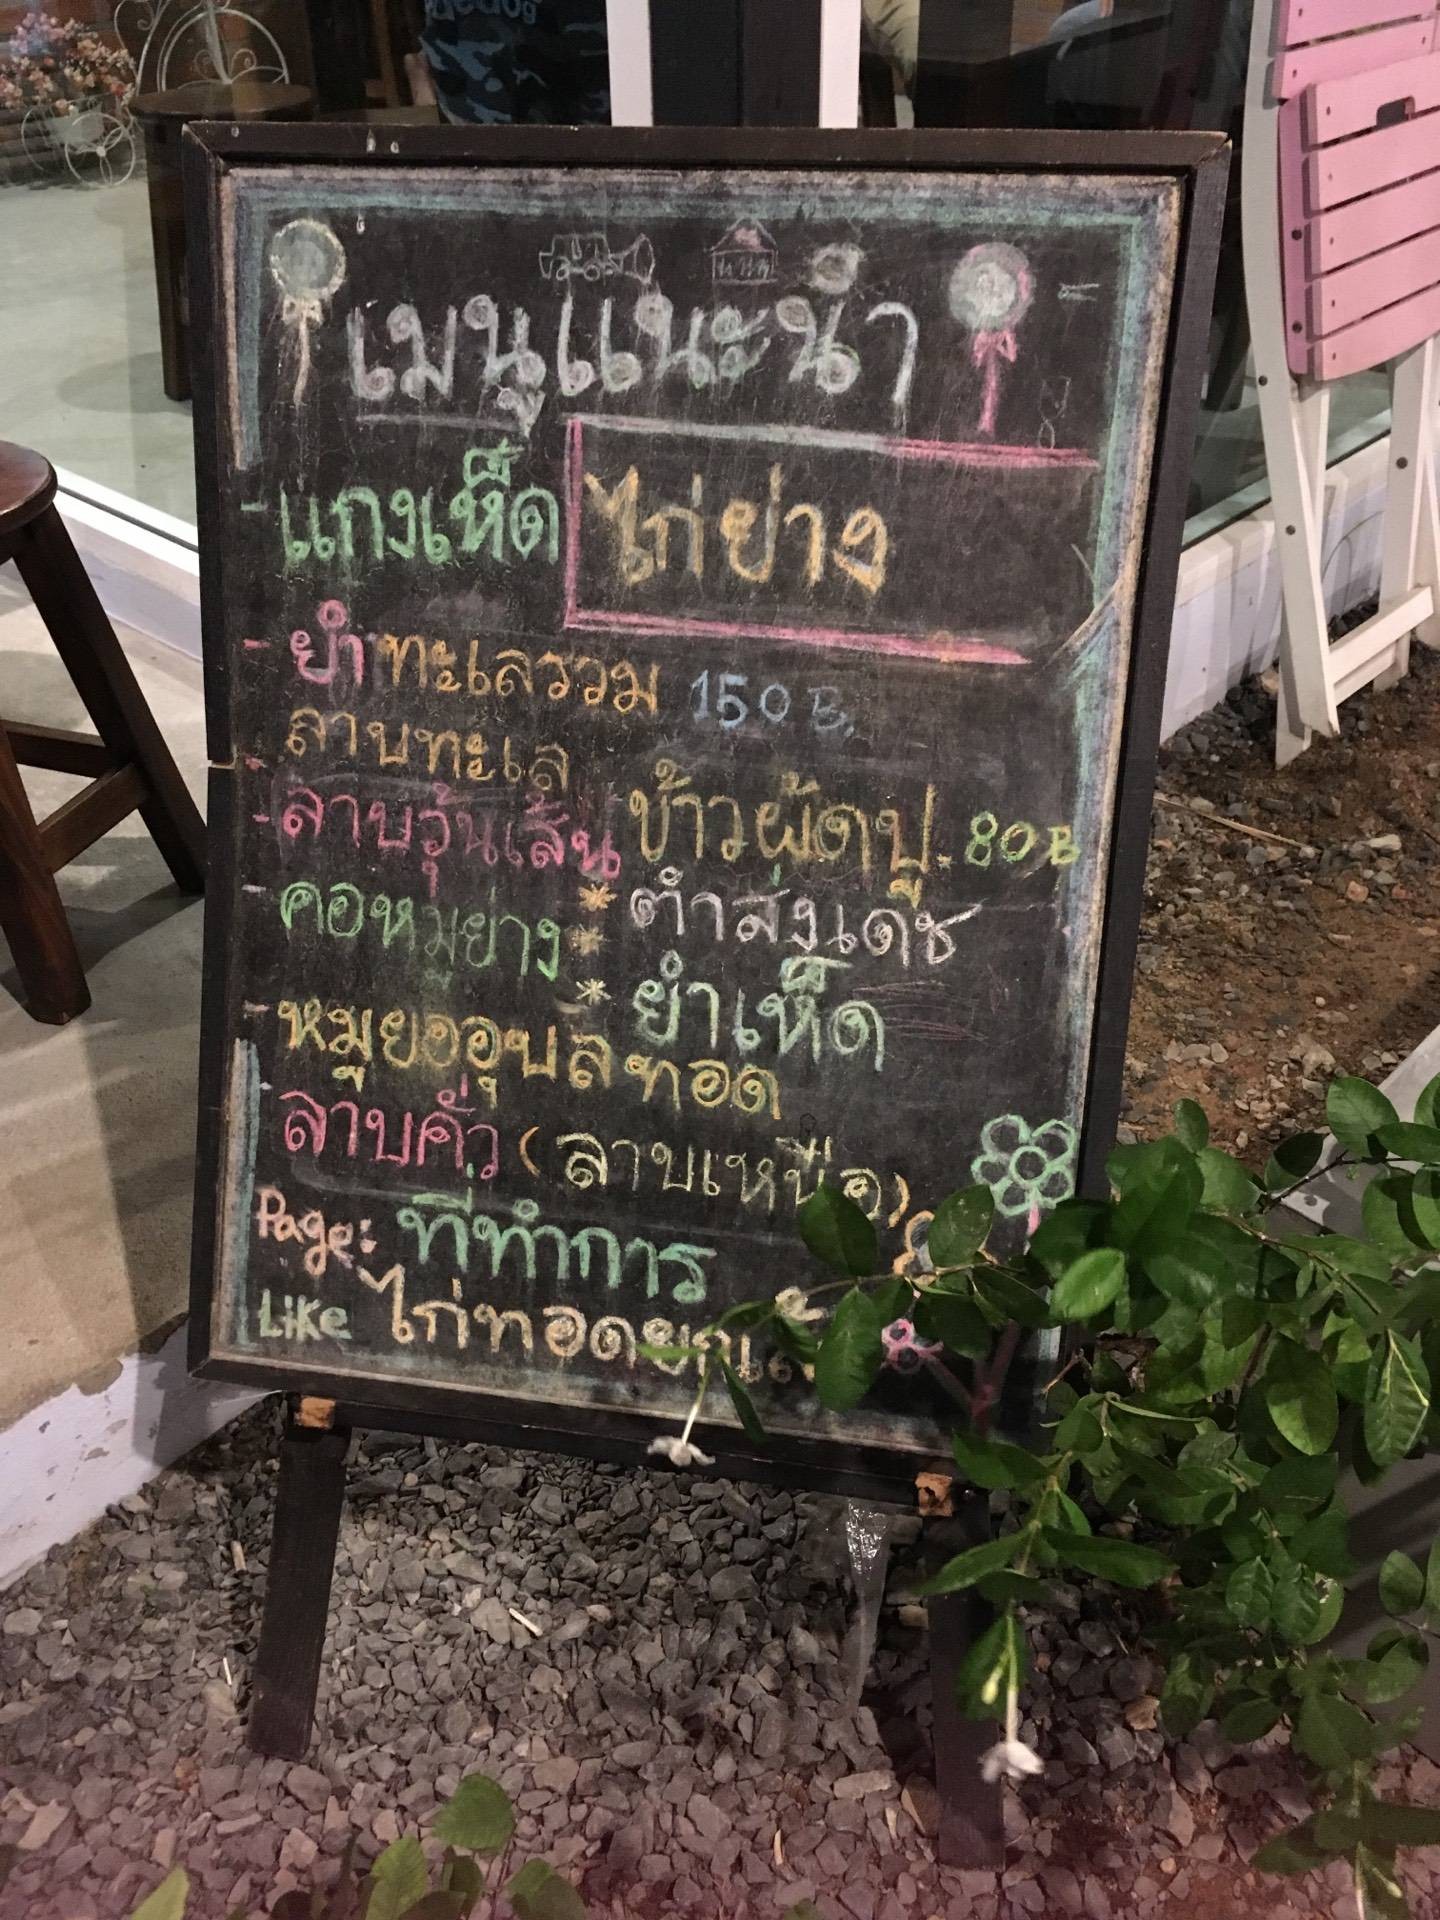 เมนูแนะนำ
- แกงเห็ด
ไก่ย่าง
- ยำทะเลรวม 150 B.
ลาบทะเล
- ลาบวุ้นเส้น
ข้าวผัดปู. 80 B
- คอหมูย่าง
* ตำส่งเดช
* ยำเห็ด
- หมูยออุบลทอด
ลาบคั่ว (ลาบเหนือ)
Page: ที่ทำการ
Like ไก่ทอด